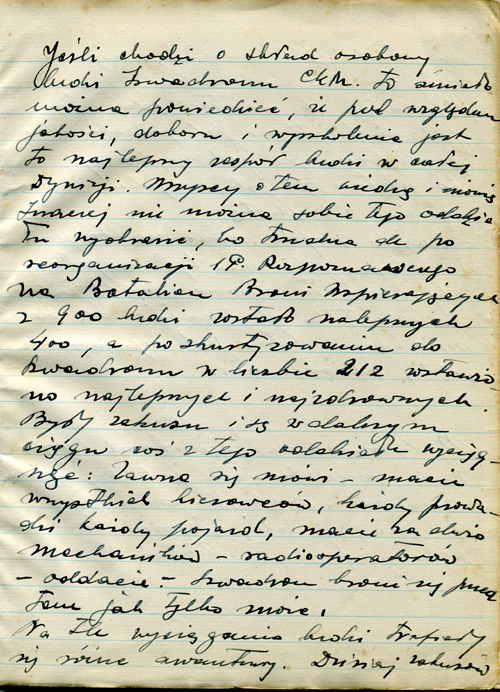 Jeśli chodzi o skład osobowy
ludzi Szwadronu CKM. to śmiało
można powiedzieć, iż pod względem
jakości, doboru i wyszkolenia jest
to najlepszy zespół ludzi w całej
Dywizji. Wszyscy o tem wiedzą i mówią
Inaczej nie można sobie tego oddzia
łu wyobrazić, bo trudno ale po
reorganizacji 1 P. Rozpoznawczego
na Batalion Broni Wspierających
z 900 ludzi zostało najlepszych
400, a po skrystyzowaniu do
Szwadronu w liczbie 212 zostawio-
no najlepszych i najzdrowszych.
Były zakusy i są w dalszym
ciągu coś z tego oddziału wyciąg-
nąć: Zawsze się mówi - macie
wszystkich kierowców, każdy prowa-
dzi każdy pojazd, macie za dużo
mechaników - radiooperatorów
- oddacie - Szwadron broni się przed
tem jak tylko może.
Na tle wyciągania ludzi
się różne awantury. Dzisiaj zakusów